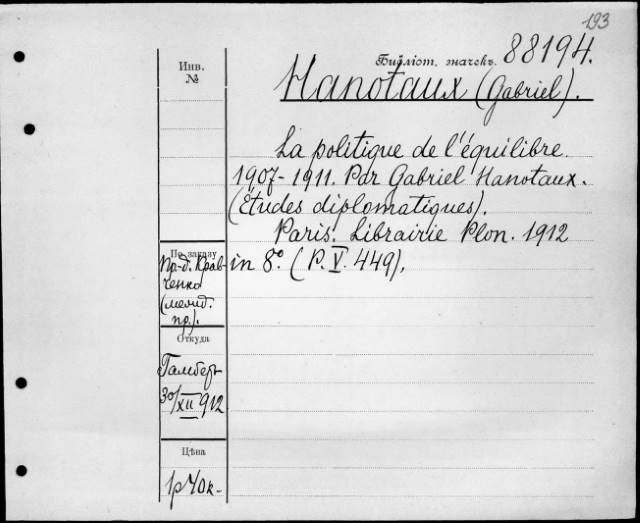 193
Библіот. значекъ 88194.
Инв.
№
Hanotaux (Gabriel).
La politique de l'équilibre.
1907-1911. Par Gabriel Hanotaux.
(Études diplomatiques).
Paris. Librairie Plon. 1912
in 8º. (P. V. 449).
По заказу
Кравченко
пр.).
Откуда
30/XII 912
Цѣна
1р 40к-